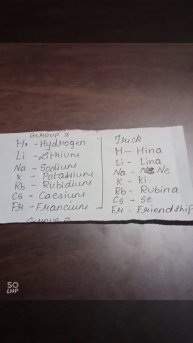 Group 1
H - Hydrogen
Li - Lithium
Na - Sodium
K - Potassium
Rb - Rubidium
Cs - Caesium
Fr - Francium
Trick
H - Hina
Li - Lina
Na - Ne
K - Ki
Rb - Rubina
Cs - Se
Fr - Friendship
SO